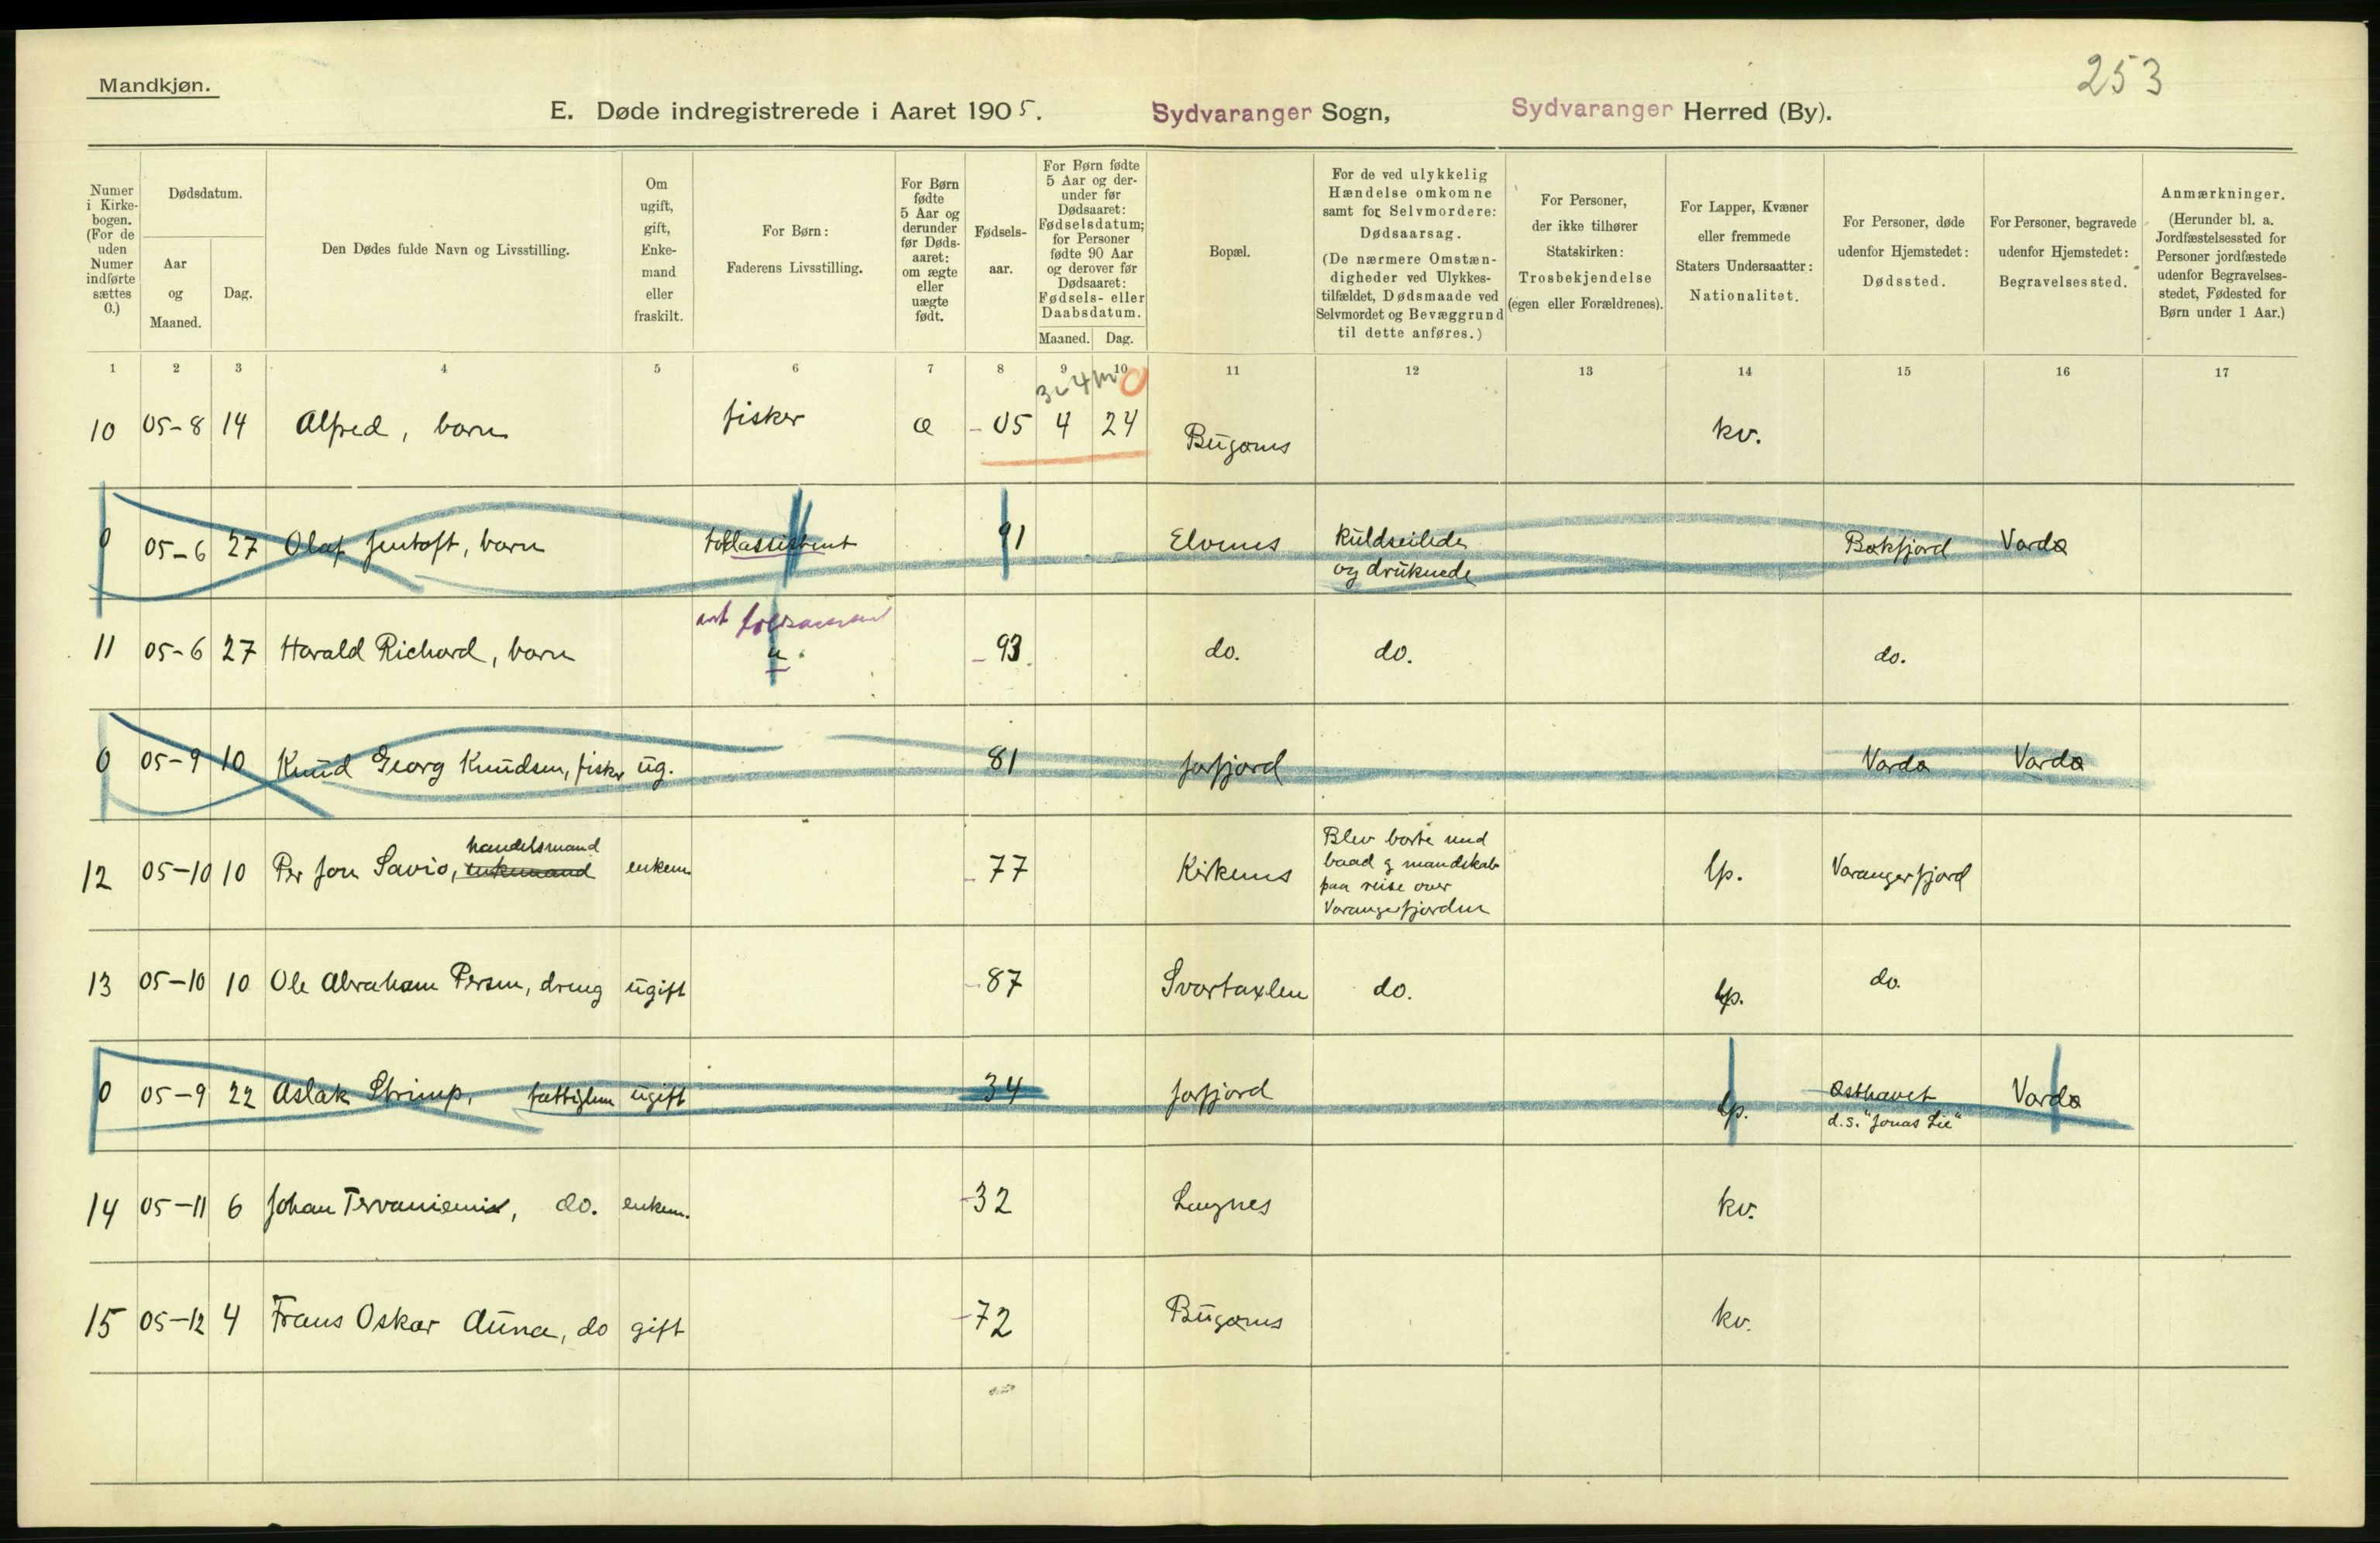 253
Mandkjøn.
E. Døde indregistrerede i Aaret 1905. Sydvaranger Sogn, Sydvaranger Herred (By).
Numer i Kirkebogen. (For de uden Numer indførte sættes 0.)
Dødsdatum.
Aar og Maaned.
Dag.
Den Dødes fulde Navn og Livsstilling.
Om ugift, gift, Enkemand eller fraskilt.
For Børn: Faderens Livsstilling.
For Børn fødte 5 Aar og derunder før Dødsaaret: om ægte eller uægte født.
Fødselsaar.
For Børn fødte 5 Aar og derunder før Dødsaaret: Fødselsdatum; for Personer fødte 90 Aar og derover før Dødsaaret: Fødsels- eller Daabsdatum.
Maaned. Dag.
Bopæl.
For de ved ulykkelig Hændelse omkomne samt for Selvmordere: Dødsaarsag. (De nærmere Omstændigheder ved Ulykkestilfældet, Dødsmaade ved Selvmordet og Bevæggrund til dette anføres.)
For Personer, der ikke tilhører Statskirken: Trosbekjendelse (egen eller Forældrenes).
For Lapper, Kvæner eller fremmede Staters Undersaatter: Nationalitet.
For Personer, døde udenfor Hjemstedet: Dødssted.
For Personer, begravede udenfor Hjemstedet: Begravelsessted.
Anmærkninger. (Herunder bl. a. Jordfæstelsessted for Personer jordfæstede udenfor Begravelsesstedet, Fødested for Børn under 1 Aar.)
1 2 3 4 5 6 7 8 9 10 11 12 13 14 15 16 17
10 05-8 14 Alfred, barn fisker æ -05 4 24 Bugønes kv.
0 05-6 27 Olaf Jentoft, barn toldassistent 91 Elvenes kuldseilede og druknede Bøkfjord Vardø
11 05-6 27 Harald Richard, barn " -93 do. do. do.
0 05-9 10 Knud Georg Knudsen, fisker ug. 81 Jarfjord Vardø Vardø
12 05-10 10 Per Jon Savio, enkemand handelsmand enkem. -77 Kirkenes Blev borte med baad og mandskab paa reise over Varangerfjorden lp. Varangerfjord
13 05-10 10 Ole Abraham Persen, dreng ugift -87 Svartaxlen do. lp. do.
0 05-9 22 Aslak Strimp, fattiglem ugift 34 Jarfjord lp. Østhavet d.s. "Jonas Lie" Vardø
14 05-11 6 Johan Tervaniemi, do. enkem. -32 Langnes kv.
15 05-12 4 Frans Oskar Auna, do gift -72 Bugønes kv.